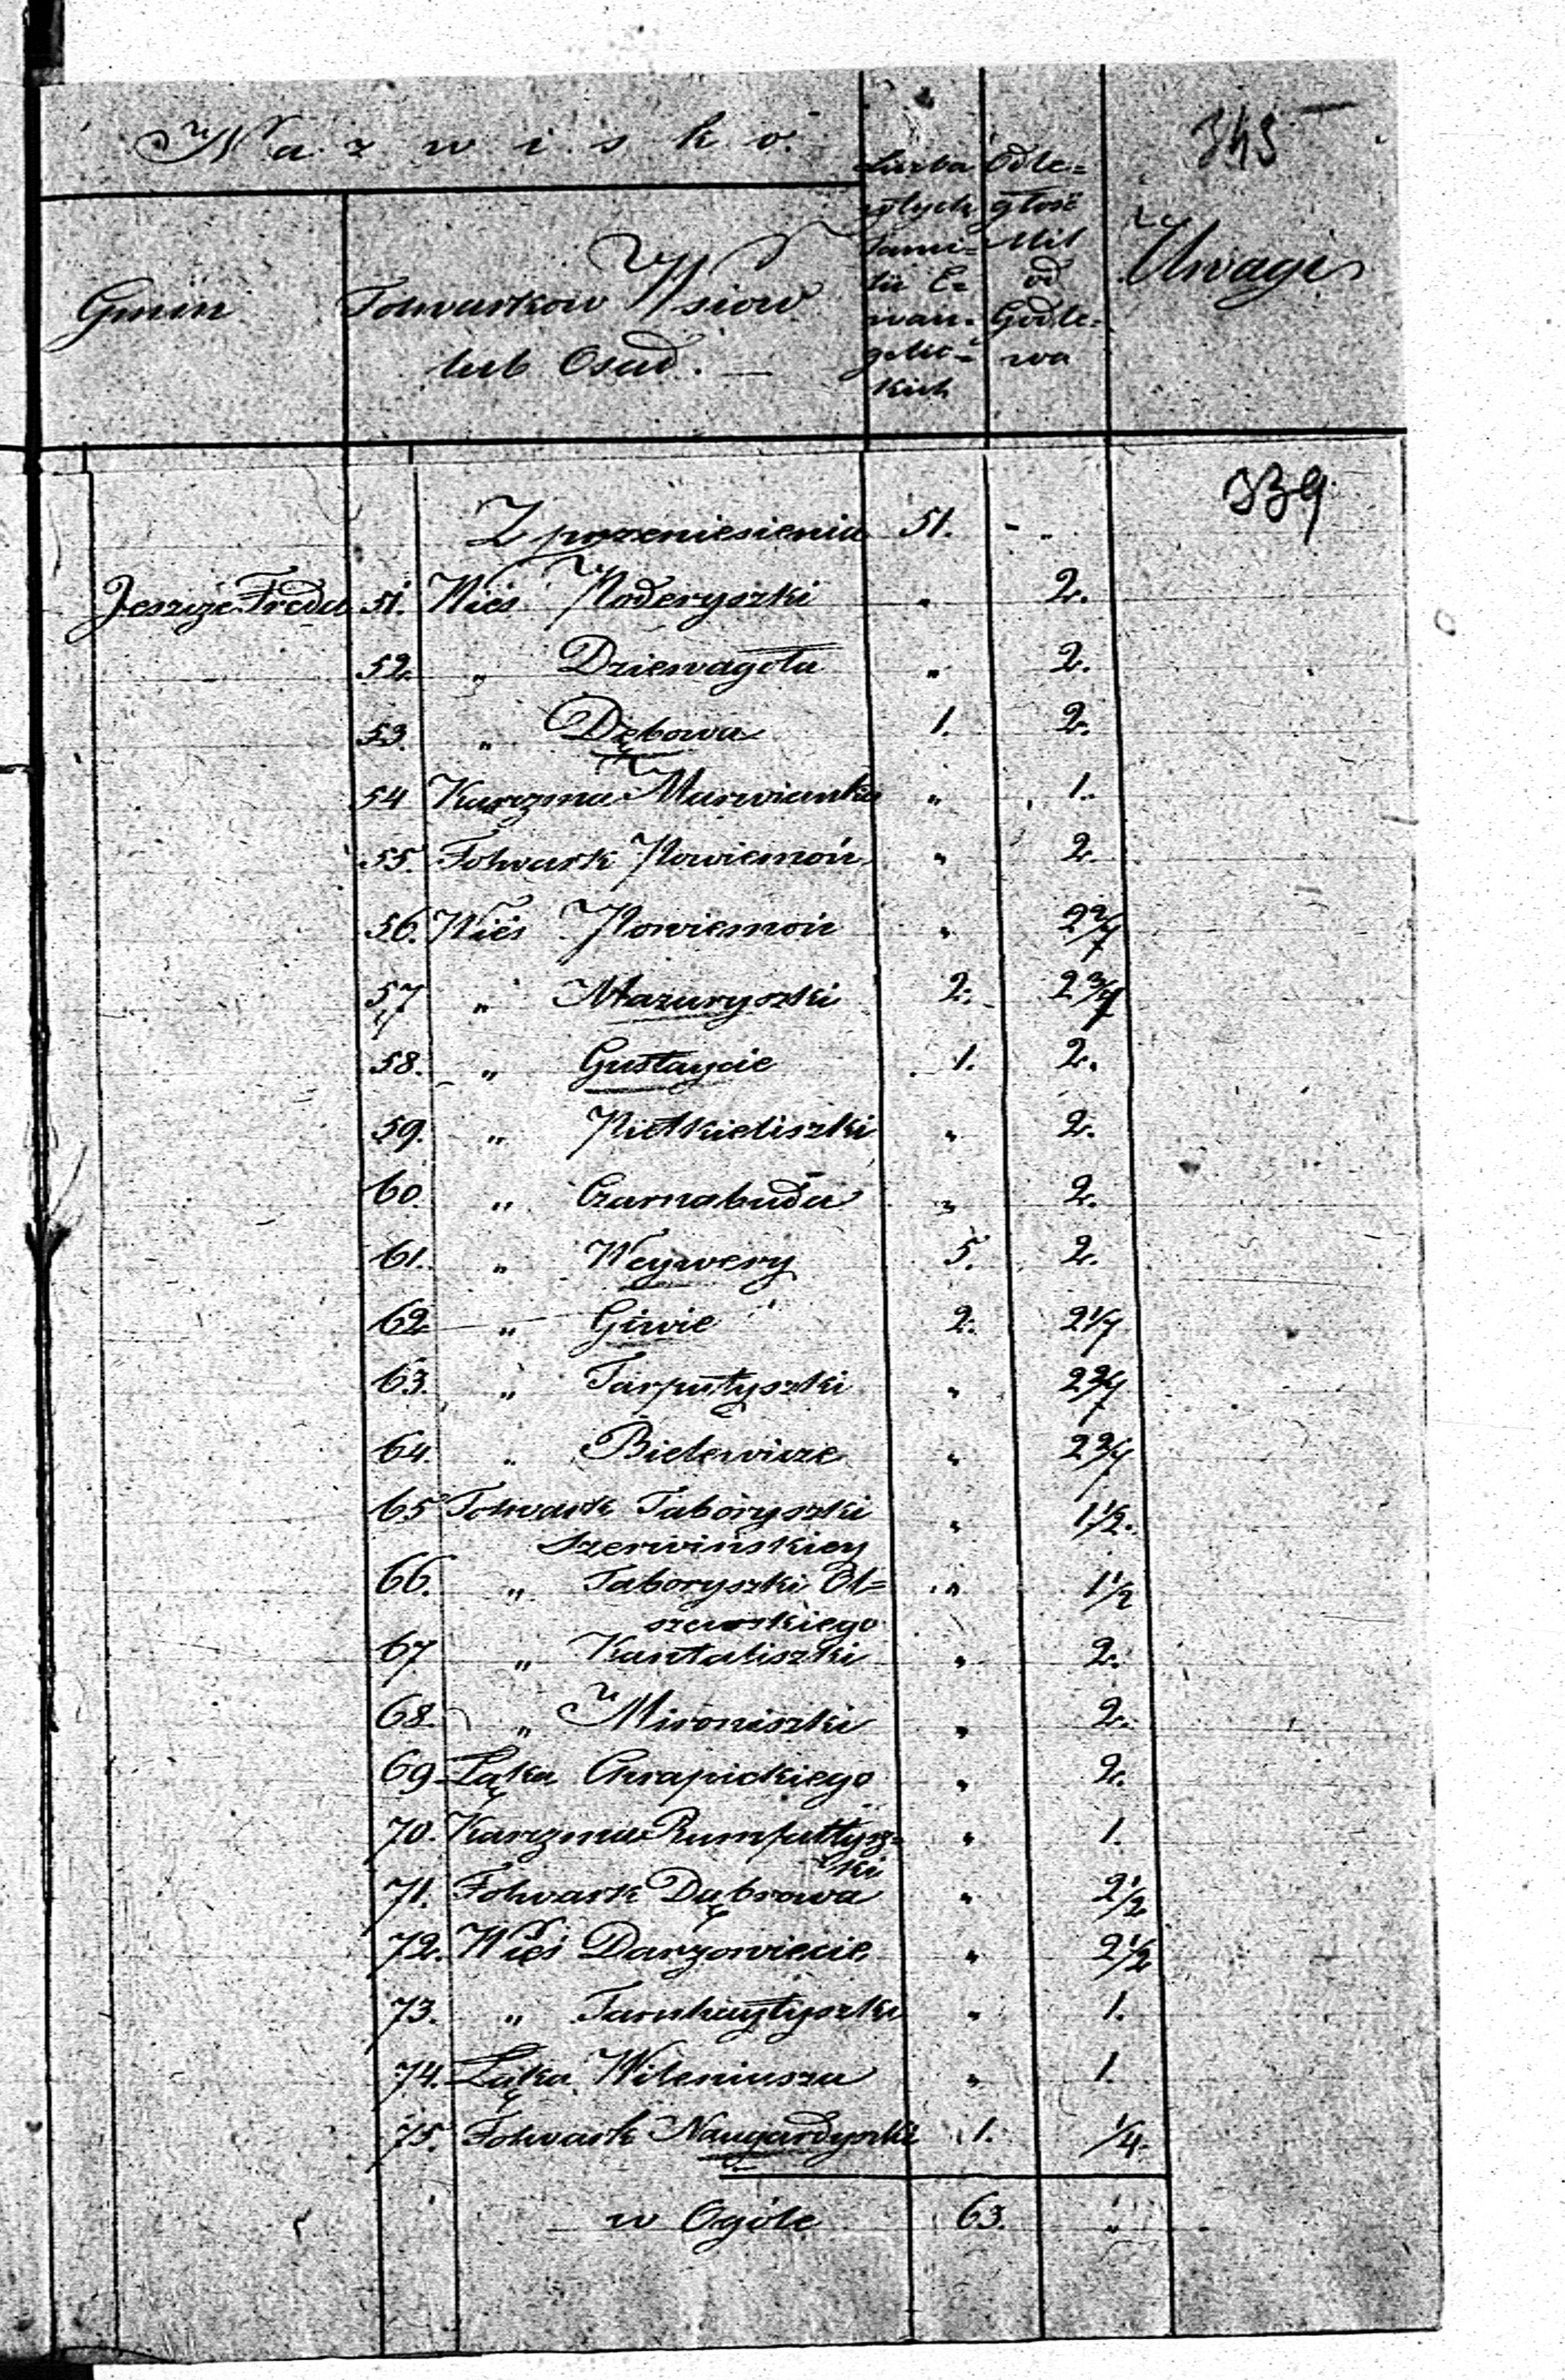 Nazwisko
345
Gmin
Folwarkow Wsiow
lub Osad.
Liczba
całych
fami=
lii E=
wan=
gelic=
kich
Odle=
głość
Mil
od
Godle=
wa
Uwagi
339
Z przeniesienia 51. - "
Jeszcze Freda 51. Wieś Poderyszki " 2.
52. " Dziewagoła " 2.
53. " Dębowa 1. 2.
54 Karczma Marwianka " 1.
55. Folwark Powiemoń " 2.
56. Wieś Powiemoń " 2 2/7
57 " Mazuryszki 2. 2 3/7
58. " Gustaycie 1. 2.
59. " Pietkieliszki " 2.
60. " Czarnabuda " 2.
61. " Weywery 5. 2.
62 " Giwie 2. 2 1/7
63. " Tarputyszki " 2 2/7
64. " Bielewicze " 2 2/7
65 Folwark Taboryszki " 1 1/2.
Szerwińskiey
66. " Taboryszki Ol= " 1 1/2
szewskiego
67 " Kantaliszki " 2.
68. " Mironiszki " 2.
69 Łąka Chrapickiego " 2.
70. Karczma Rumfułtysz= " 1.
ki
71. Folwark Dąbrowa " 2 1/2
72. Wieś Darzowiecie " 2 1/2
73. " Tarnhaytyszki " 1.
74. Łąka Wileniusza " 1.
75. Folwark Naugardyszki 1. 1/4.
w Ogóle 63. "